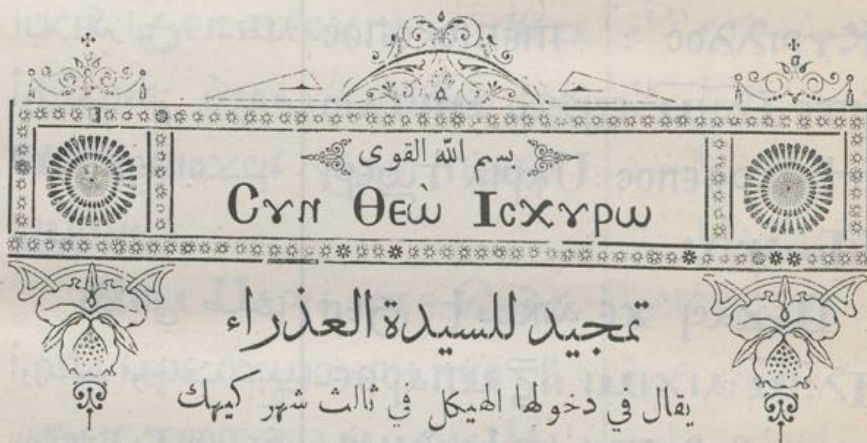 بسم الله القوى
Ⲥⲩⲛ Ⲑⲉⲱ̀ Ⲓⲥⲭⲩⲣⲱ
تمجيد للسيدة العذراء
يقال في دخولها الهيكل في ثالث شهر كيهك